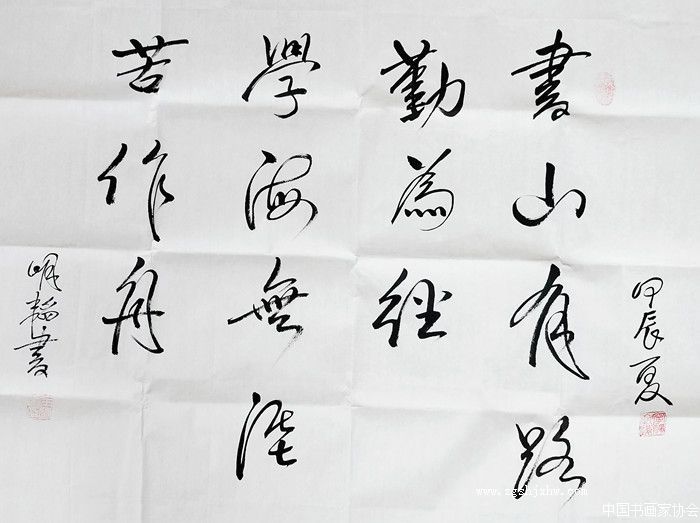 甲辰夏
書山有路
勤為経
學海無涯
苦作舟
明書
中国书画家协会